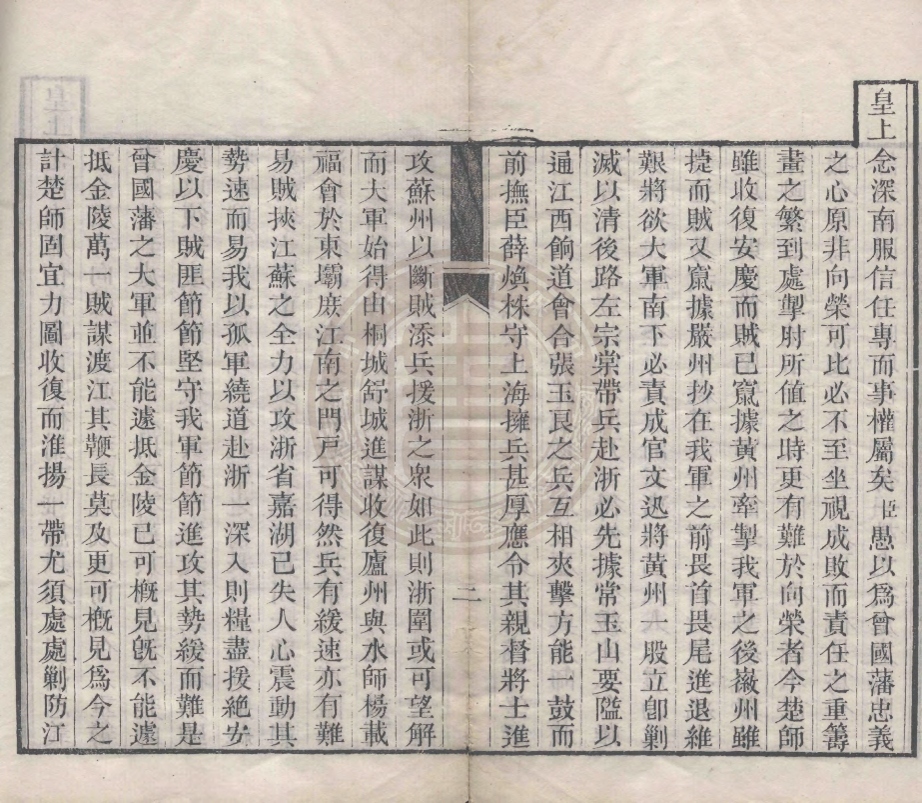 皇上念深南服信任專而事權屬矣臣愚以爲曾國藩忠義
之心原非向榮可比必不至坐視成敗而責任之重籌
畫之繁到處掣肘所值之時更有難於向榮者今楚師
雖收復安慶而賊已竄據黃州牽掣我軍之後徽州雖
捷而賊又竄據嚴州抄在我軍之前畏首畏尾進退維
艱將欲大軍南下必責成官文迅將黃州一股立卽剿
滅以清後路左宗棠帶兵赴浙必先據常玉山要隘以
通江西餉道會合張玉良之兵互相夾擊方能一鼓而
前撫臣薛煥株守上海擁兵甚厚應令其親督將士進
二
攻蘇州以斷賊添兵援浙之衆如此則浙圍或可望解
而大軍始得由桐城舒城進謀收復廬州與水師楊載
福會於東壩庶江南之門戸可得然兵有緩速亦有難
易賊挾江蘇之全力以攻浙省嘉湖已失人心震動其
勢速而易我以孤軍繞道赴浙一深入則糧盡援絶安
慶以下賊匪節節堅守我軍節節進攻其勢緩而難是
曾國藩之大軍並不能遽抵金陵已可概見旣不能遽
抵金陵萬一賊謀渡江其鞭長莫及更可概見爲今之
計楚師固宜力圖收復而淮揚一帶尤須處處剿防江